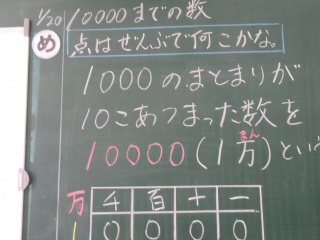 1/20 10000までの数
め 点はぜんぶで何こかな。
1000のまとまりが
10こあつまった数を
まん
10000(1万)とい
万 千 百 十 一
1 0 0 0 0